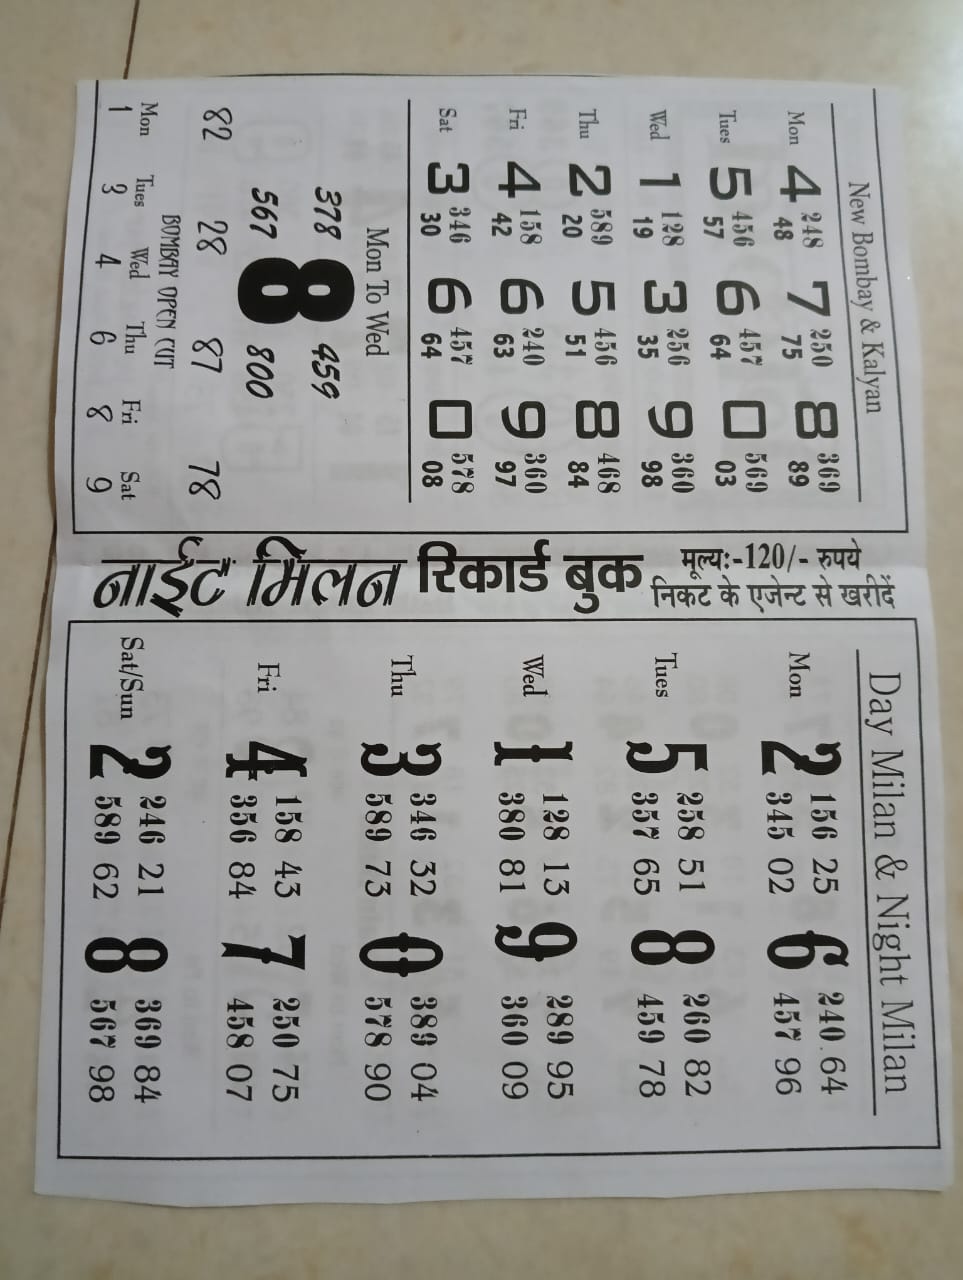 New Bombay & Kalyan
Mon 4 248 48 7 250 75 8 369 89
Tues 5 456 57 6 457 64 0 569 03
Wed 1 128 19 3 256 35 9 360 98
Thu 2 589 20 5 456 51 8 468 84
Fri 4 158 42 6 240 63 9 360 97
Sat 3 346 30 6 457 64 0 578 08
Mon To Wed
378 459
8
567 800
82 28 87 78
BOMBAY OPEN CUT
Mon Tues Wed Thu Fri Sat
1 3 4 6 8 9
नाईट मिलन रिकार्ड बुक
मूल्य:-120/- रुपये
निकट के एजेन्ट से खरीदें
Day Milan & Night Milan
Mon 2 156 25 6 240 64
345 02 457 96
Tues 5 258 51 8 260 82
357 65 459 78
Wed 1 128 13 9 289 95
380 81 360 09
Thu 3 346 32 0 389 04
589 73 578 90
Fri 4 158 43 7 250 75
356 84 458 07
Sat/Sun 2 246 21 8 369 84
589 62 567 98